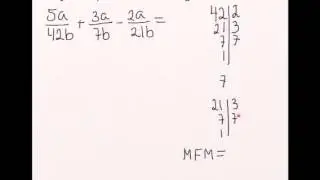 5a/42b + 3a/7b - 2a/21b =
42 | 2
21 | 3
7 | 7
1 |
7
21 | 3
7 | 7
1 |
MFM =